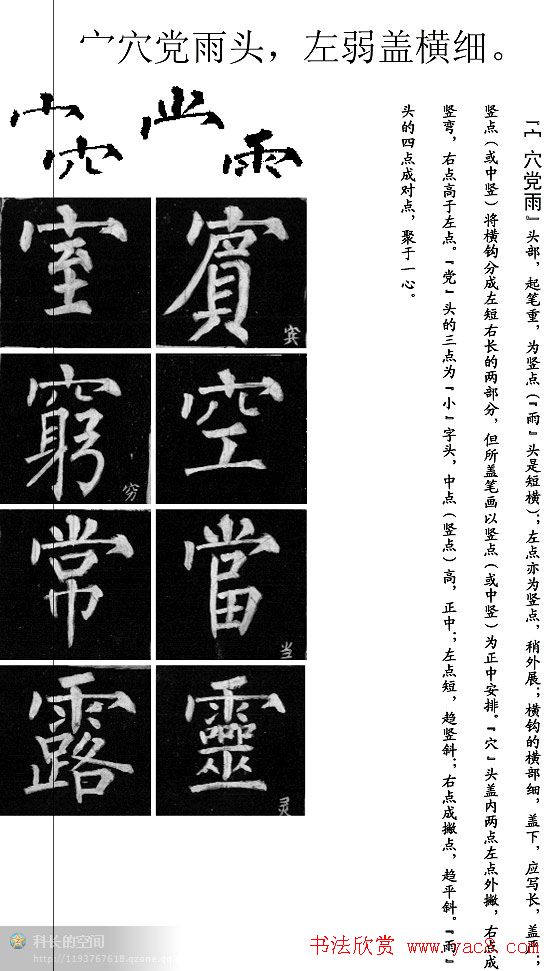 宀穴党雨头，左弱盖横细。
『宀穴党雨』头部，起笔重，为竖点（『雨』头是短横）；左点亦为竖点，稍外展；横钩的横部细，盖下，应写长，盖严；
竖点（或中竖）将横钩分成左短右长的两部分，但所盖笔画以竖点（或中竖）为正中安排。『穴』头盖内两点左点外撇，右点成
竖弯，右点高于左点。『党』头的三点为『小』字头，中点（竖点）高，正中；左点短，趋竖斜；右点成撇点，趋平斜。『雨』
头的四点成对点，聚于一心。
宀
穴
雨
室
賓
宾
窮
穷
空
常
當
当
露
靈
灵
科长的空间
http://1193767618.qzone.qq.com
书法欣赏 www.yac8.com